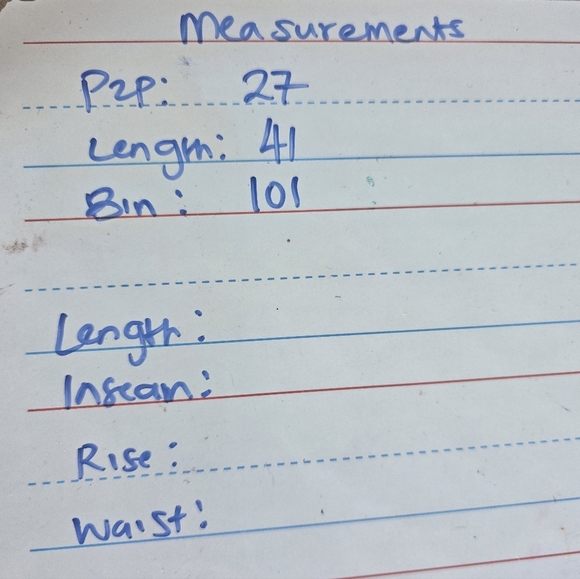 Measurements
P2P: 27
Length: 41
Bin: 101
Length:
Inseam:
Rise:
Waist: